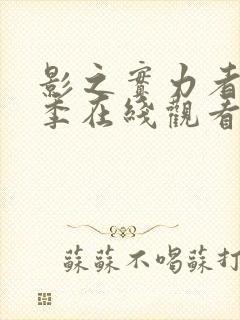 影之實力者
季在綫觀看
蘇蘇不唱蘇打